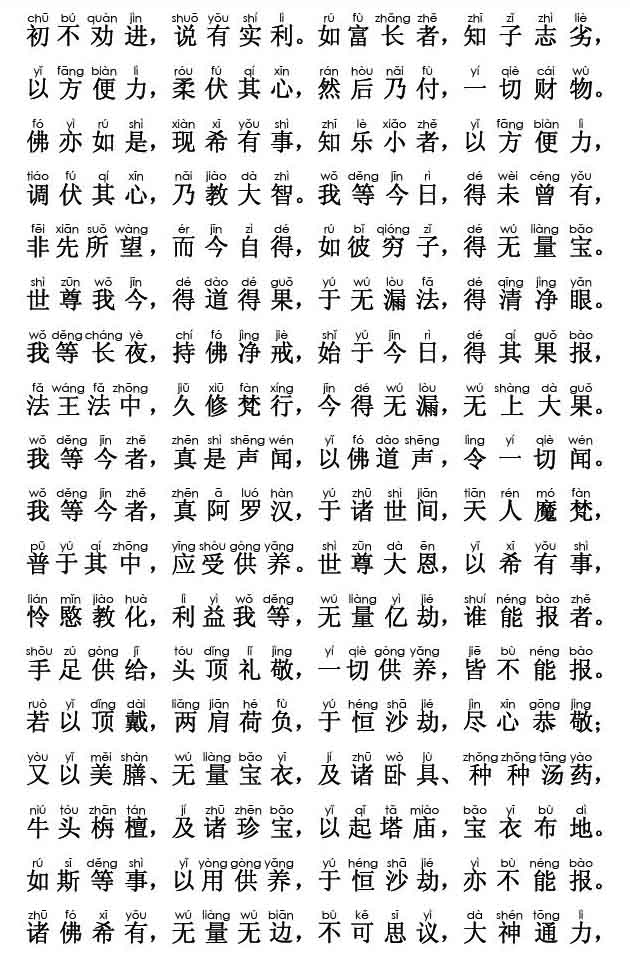 chū bú quàn jìn shuō yǒu shí lì rú fù zhǎng zhě zhī zǐ zhì liè
初不劝进，说有实利。如富长者，知子志劣，
yǐ fāng biàn lì róu fú qí xīn rán hòu nǎi fù yí qiè cái wù
以方便力，柔伏其心，然后乃付，一切财物。
fó yì rú shì xiàn xī yǒu shì zhī lè xiǎo zhě yǐ fāng biàn lì
佛亦如是，现希有事，知乐小者，以方便力，
tiáo fú qí xīn nǎi jiào dà zhì wǒ děng jīn rì dé wèi céng yǒu
调伏其心，乃教大智。我等今日，得未曾有，
fēi xiān suǒ wàng ér jīn zì dé rú bǐ qióng zǐ dé wú liàng bǎo
非先所望，而今自得，如彼穷子，得无量宝。
shì zūn wǒ jīn dé dào dé guǒ yú wú lòu fǎ dé qīng jìng yǎn
世尊我今，得道得果，于无漏法，得清净眼。
wǒ děng cháng yè chí fó jìng jiè shǐ yú jīn rì dé qí guǒ bào
我等长夜，持佛净戒，始于今日，得其果报，
fǎ wáng fǎ zhōng jiǔ xiū fàn xíng jīn dé wú lòu wú shàng dà guǒ
法王法中，久修梵行，今得无漏，无上大果。
wǒ děng jīn zhě zhēn shì shēng wén yǐ fó dào shēng lìng yí qiè wén
我等今者，真是声闻，以佛道声，令一切闻。
wǒ děng jīn zhě zhēn ā luó hàn yú zhū shì jiān tiān rén mó fàn
我等今者，真阿罗汉，于诸世间，天人魔梵，
pǔ yú qí zhōng yīng shòu gòng yǎng shì zūn dà ēn yǐ xī yǒu shì
普于其中，应受供养。世尊大恩，以希有事，
lián mǐn jiào huà lì yì wǒ děng wú liàng yì jié shuí néng bào zhě
怜愍教化，利益我等，无量亿劫，谁能报者。
shǒu zú gòng jǐ tóu dǐng lǐ jìng yí qiè gòng yǎng jiē bù néng bào
手足供给，头顶礼敬，一切供养，皆不能报。
ruò yǐ dǐng dài liǎng jiān hé fù yú héng shā jié jìn xīn gōng jìng
若以顶戴，两肩荷负，于恒沙劫，尽心恭敬；
yòu yǐ měi shàn wú liàng bǎo yī jí zhū wò jù zhǒng zhǒng tāng yào
又以美膳、无量宝衣，及诸卧具、种种汤药，
niú tóu zhān tán jí zhū zhēn bǎo yǐ qǐ tǎ miào bǎo yī bù dì
牛头栴檀，及诸珍宝，以起塔庙，宝衣布地。
rú sī děng shì yǐ yòng gòng yǎng yú héng shā jié yì bù néng bào
如斯等事，以用供养，于恒沙劫，亦不能报。
zhū fó xī yǒu wú liàng wú biān bù kě sī yì dà shén tōng lì
诸佛希有，无量无边，不可思议，大神通力，